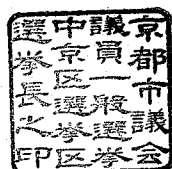 京都市議会
議員一般選挙
中京区選挙区
選挙長之印